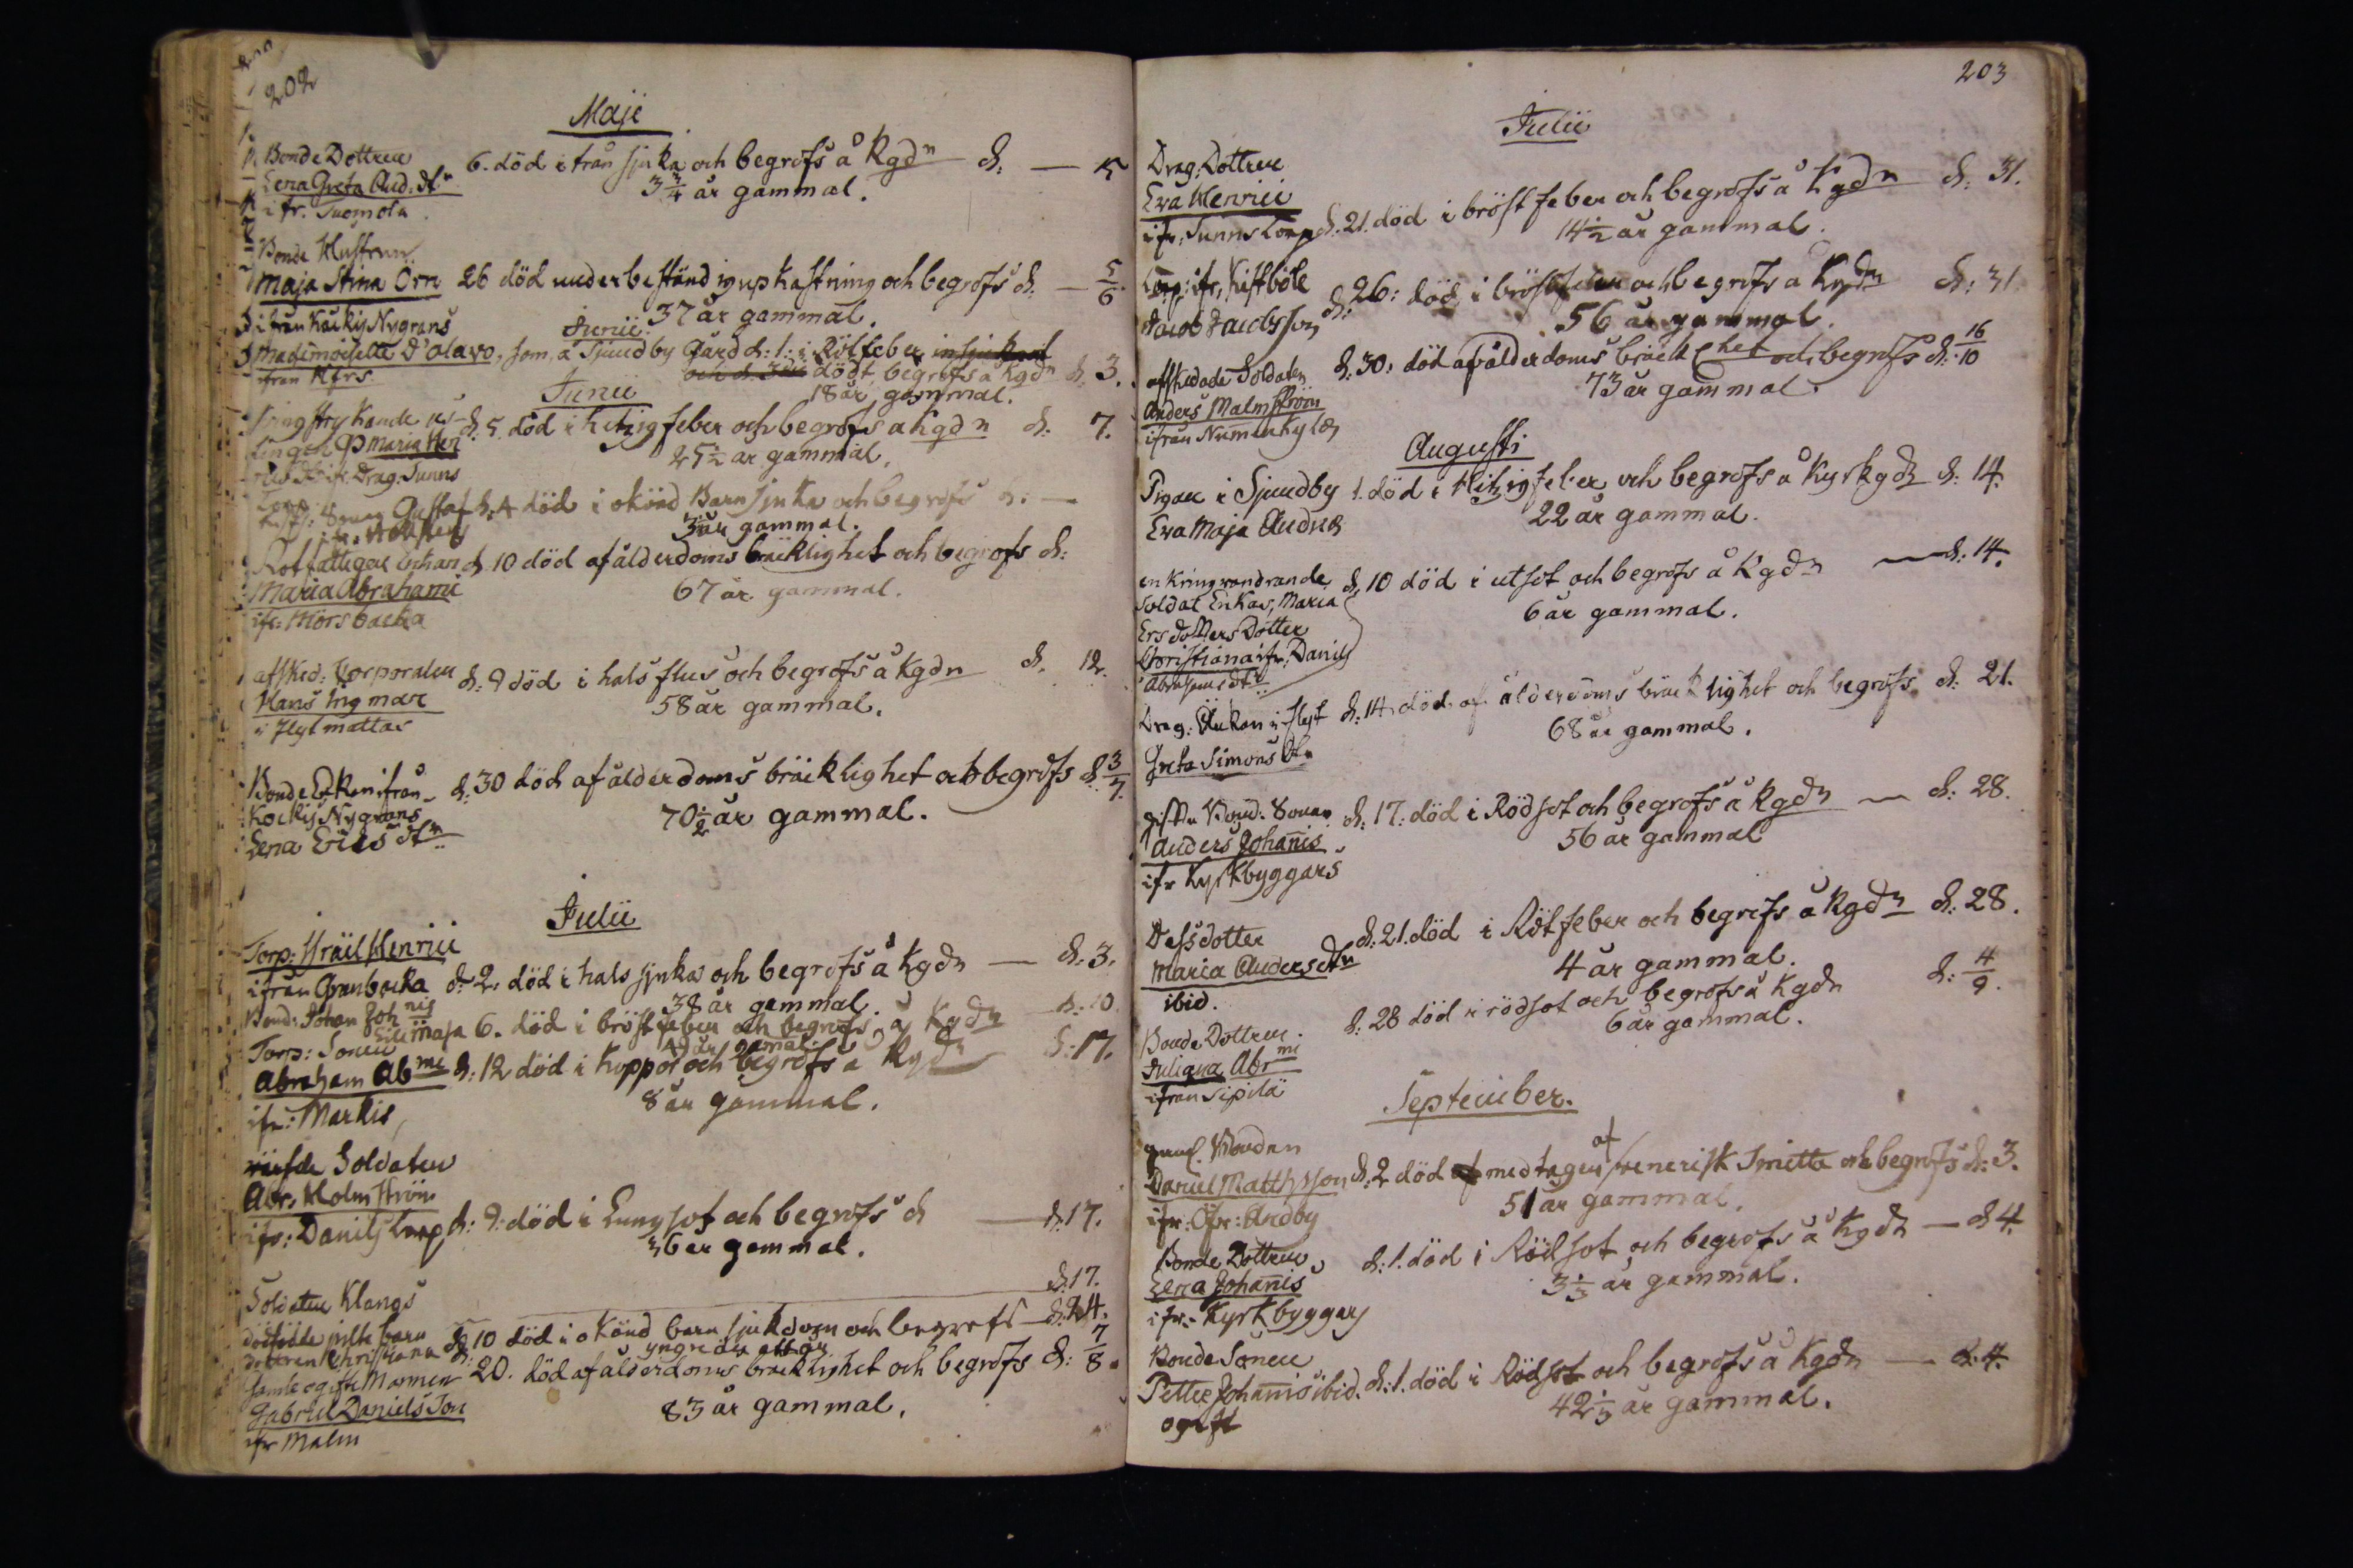 202
Maji
Bonde Dottren 6. död i från sjuka och begrofs å Kgdn d. — 5
Lena Greta And: dtr 3 3/4 år gammal.
ifr. Suomola
Bonde Hustrun
Maja Stina Örn 26 död under beständig upkastning och begrofs d. — 5/6
ifrån Käckis Nygrans 37 år gammal.
Junii
Madimoiselle D'olavo, som å Sjundby Gård d: 1: i Rötfeber
ifrån Kfrs dödt, begrofs å Kgdn d. 3.
18 år gammal.
Junii
Kringstrykande d. 5. död i hetzig feber och begrofs å Kgdn d. 7.
Maria Hen 25 1/2 år gammal.
ifr. Drag: Sunns
Torp
Sonen Gustaf d. 4 död i okänd Barnsjuka och begrofs d. —
3 år gammal.
Rotfattigen Enkan d. 10 död af ålderdoms bräcklighet och begrofs d:
Maria Abrahami 67 år gammal.
ifr: Mörsbacka
afsked: Corporalen d: 9 död i halsflus och begrofs å Kgdn d. 12.
Hans Ingmar 58 år gammal.
i Flytmattas
Bonde Enkan ifrån d: 30 död af ålderdoms bräcklighet och begrofs d 3/7.
Kockis Nygrans 70 1/2 år gammal.
Lena Erics dtr
Julii
Torp: Israël Henrici
ifrån Granbacka d. 2. död i halssjuka och begrofs å Kgdn — d. 3.
38 år gammal.
Bond: Johan Joh nis
Maja 6. död i bröstfeber och begrofs å Kgdn d. 10
Torp: Sonen 49 år gamal.
Abraham Abmi d: 12 död i koppor och begrofs å Kgdn d: 17.
ifr: Markis, 8 år gammal.
värfde Soldaten
Abr. Holmström
ifr: Danils torp d: 9: död i Lungsot och begrofs d — d. 17.
36 år gammal.
Soldaten Klangs d. 17.
dödfödde barn
dotteren Christiana d. 10 död i okänd barnsjukdom och begrofs — d. 24.
yngre än ett år
gamle ogifte Mannen d: 20. död af ålderdoms bräcklighet och begrofs d: 7/8.
Gabriel Daniels Son 83 år gammal.
ifr Malm
203
Julii
Drag: Dottren
Eva Henrici
ifr: Sunns torp d. 21. död i bröstfeber och begrofs å Kgdn d: 31.
14 1/2 år gammal.
Torp: ifr. Kistböle d. 26: död i bröstfeber och begrofs å Kgdn d: 31.
Jacob Jacobsson 56 år gammal.
afskedade Soldaten d: 30. död af ålderdoms bräcklighet och begrofs d: 16/10
Anders Malmström 73 år gammal.
ifrån Numenkylä
Augusti
Pigan i Sjundby 1. död i Hitzig feber och begrofs å Kyrkgdn d. 14.
Eva Maja 22 år gammal.
en kringvandrande d. 10 död i utsot och begrofs å Kgdn — d. 14.
Soldat Enkas, Maria 6 år gammal.
Ersdotters Dotter
Christiana ifr. Danils
Abrahams dtr
Drag: Enkan i Flyt d: 14. död af ålderdoms bräcklighet och begrofs d: 21.
Greta Simons dtr 68 år gammal.
giftu Bond. Sonen d. 17: död i Rödsot och begrofs å Kgdn — d: 28.
Anders Johanis 56 år gammal
ifr Kyrkbyggars
Dess dotter d: 21. död i Rötfeber och begrofs å Kgdn d: 28.
Maria Anders dtr 4 år gammal.
ibid.
Bonde Dottren d. 28 död i rödsot och begrofs å Kgdn d: 4/9.
Juliana Abrmi 6 år gammal.
ifrån Sipilä
September.
gaml. Bonden af
Daniel Mathsson d. 2 död medtagen venerisk Smitta och begrofs d: 3.
ifr: Öfr: Andby 51 år gammal.
Bonde Dottren d: 1. död i Rödsot och begrofs å Kgdn — d 4.
Lena Johanis 3 1/3 år gammal.
ifr: Kyrkbyggars
Bonde Sonen
Petter Johanis ibid. d. 1. död i Rödsot och begrofs å Kgdn — d. 4.
ogift 42 1/3 år gammal.